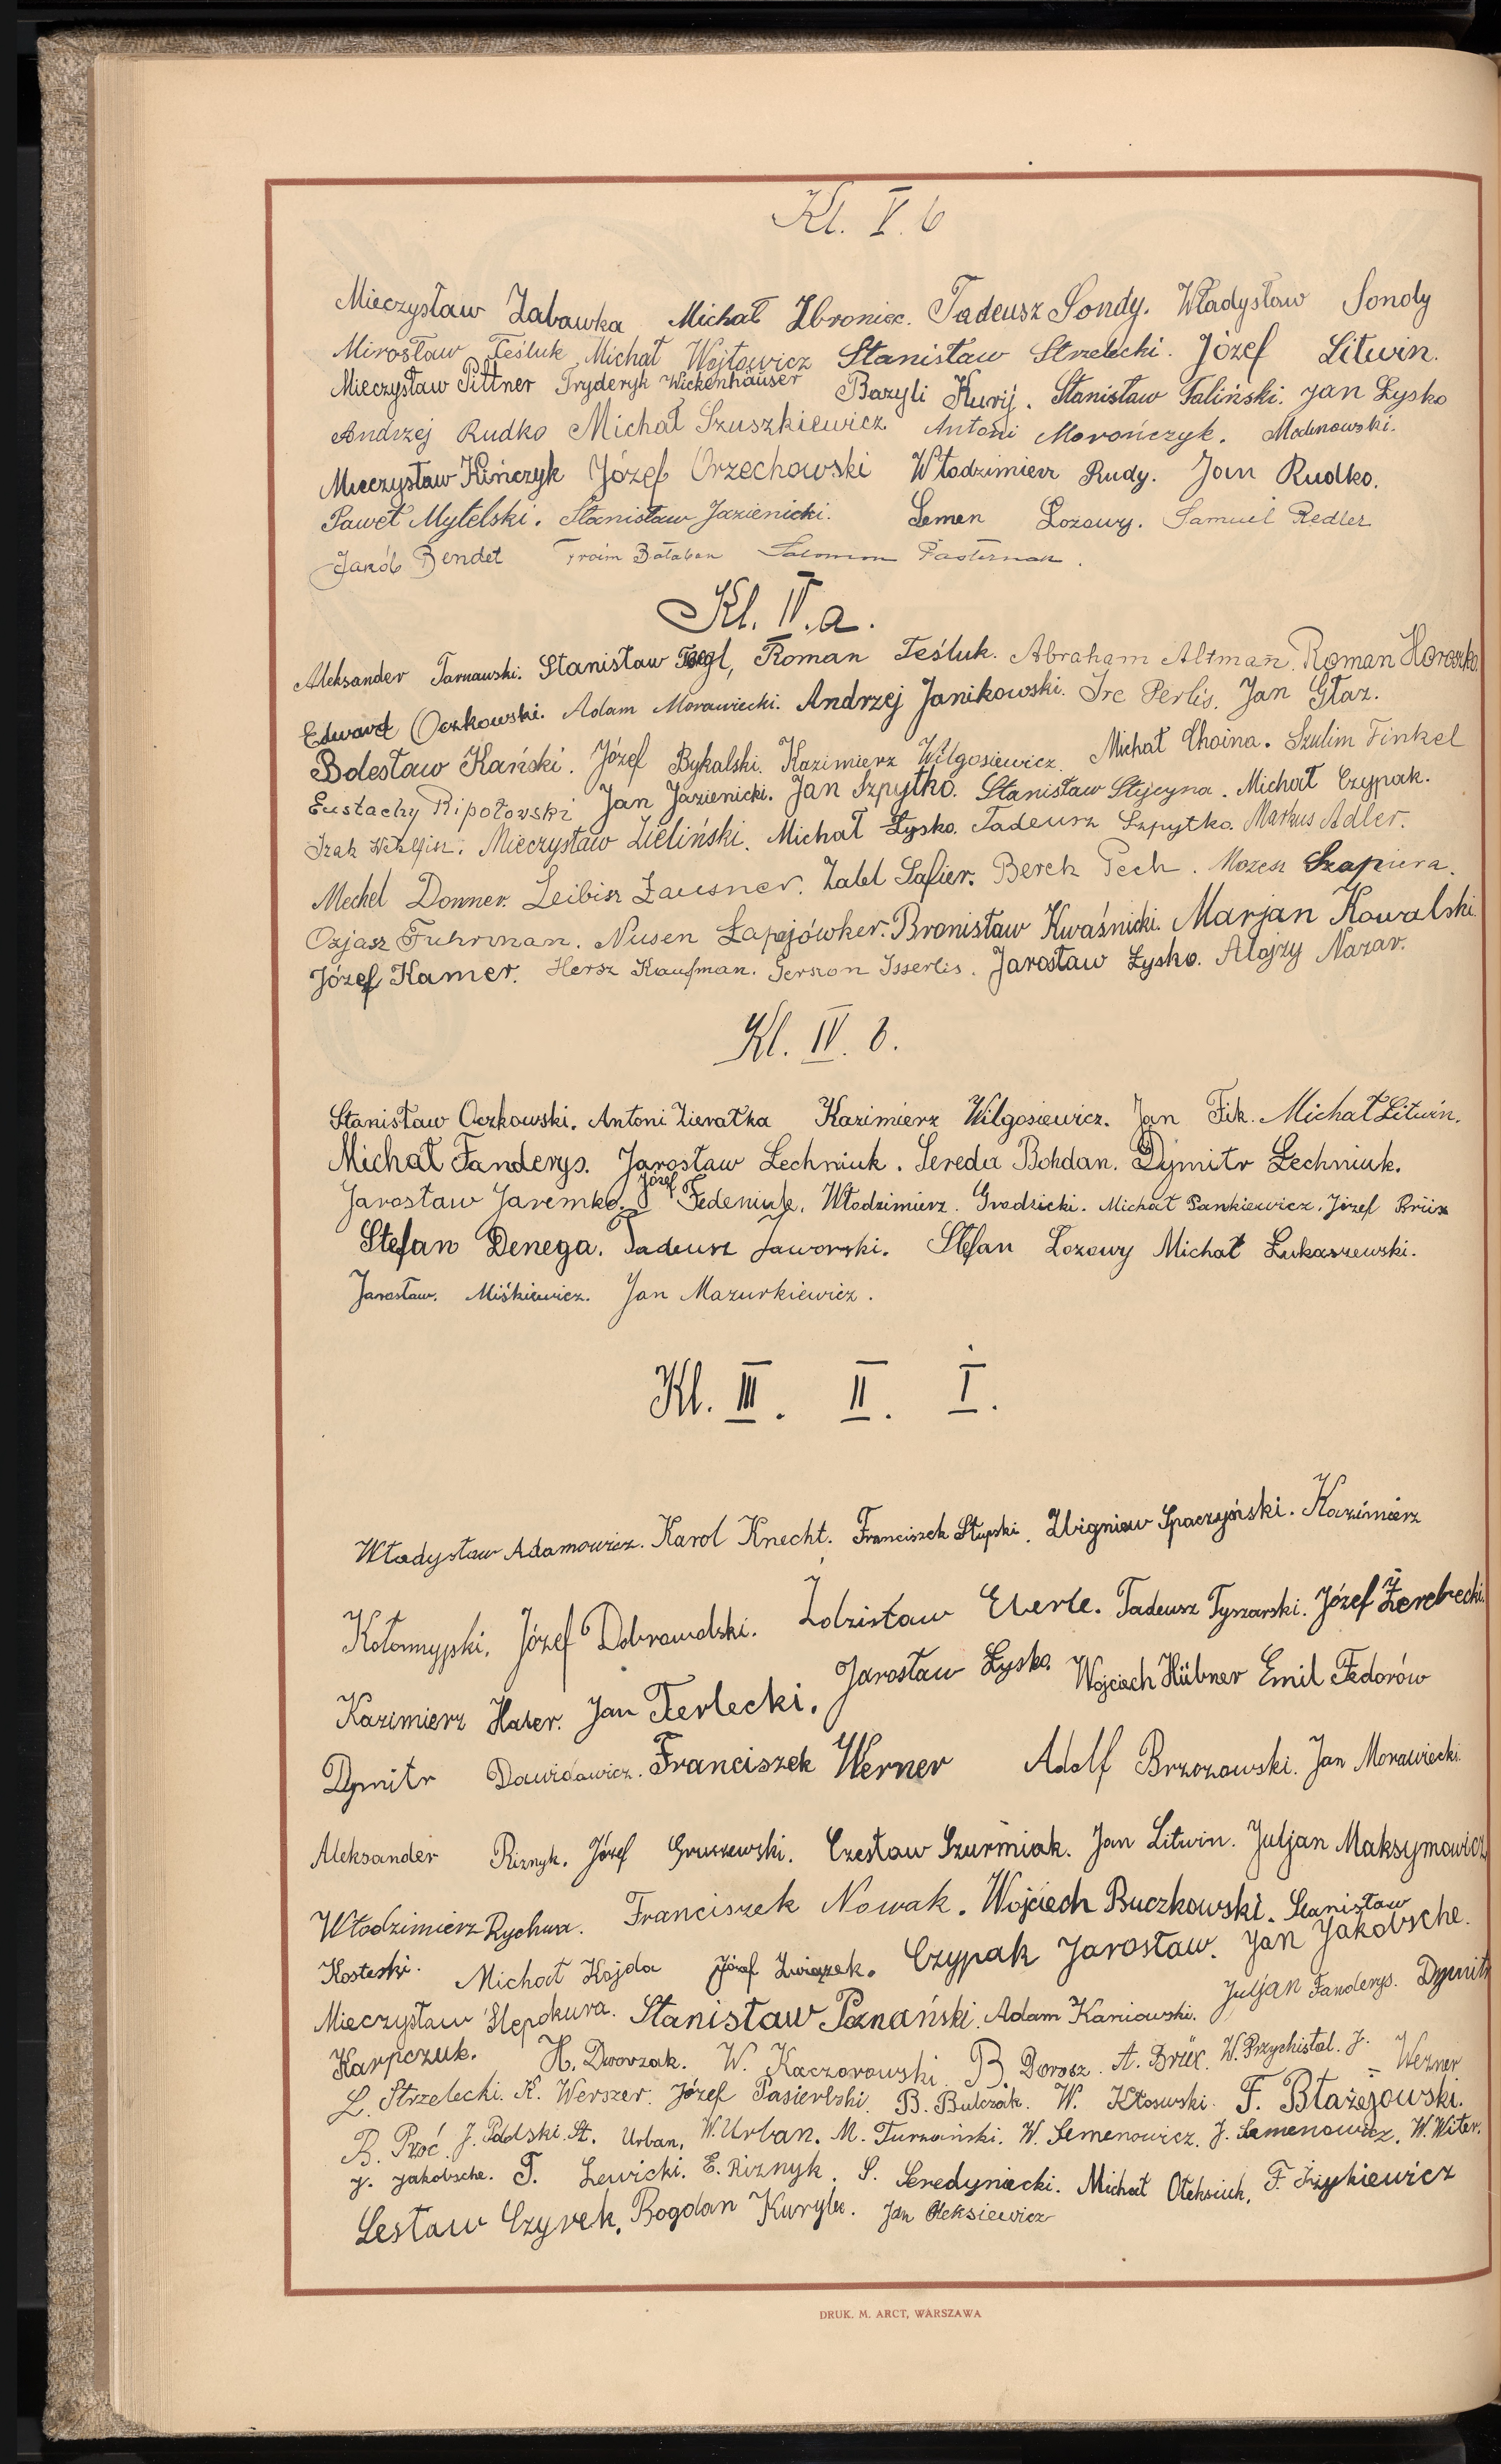 Kl. V. b
Mieczysław Zabawka Michał Zbroniec. Tadeusz Sondy. Władysław Sondy
Mirosław Teśluk Michał Wojtowicz Stanisław Strzelecki. Józef Litwin.
Mieczysław Pittner Fryderyk Wickenhäuser Bazyli Kurij. Stanisław Faliński. Jan Łysko
Andrzej Rudko Michał Szuszkiewicz Antoni Morończyk.
Mieczysław Kińczyk Józef Orzechowski Włodzimierz Rudy. Jan Rudko.
Paweł Mytelski. Stanisław Jazienicki. Semen Łozowy. Samuel Redler
Jakób Bendet Froim Bałaban Salomon Pasternak.
Kl. IV. a.
Aleksander Tarnawski. Stanisław Roman Teśluk. Abraham Altman. Roman Horoszko
Edward Oczkowski. Adam Morawiecki. Andrzej Janikowski. Ire Perlis. Jan Głaz.
Bolesław Kański. Józef Bykalski. Kazimierz Wilgosiewicz. Michał Choina. Szulim Finkel
Eustachy Ripołowski Jan Jazienicki. Jan Szpytko. Stanisław Stejcyna. Michał Czypak.
Izak Mieczysław Zieliński. Michał Łysko. Tadeusz Szpytko. Markus Adler.
Mechel Donner. Leibisz Zausner. Zalel Safier. Berek Pech. Mozesz Szapiera.
Ozjasz Fuhrman. Nusen Łapajówker. Bronisław Kwaśnicki. Marjan Kowalski.
Józef Kamer. Hersz Kaufman. Gerszon Isserlis. Jarosław Łysko. Alojzy Nazar.
Kl. IV. b.
Stanisław Oczkowski. Antoni Zieratka Kazimierz Wilgosiewicz. Jan Fik. Michał Litwin.
Michał Fanderys. Jarosław Lechniuk. Sereda Bohdan. Dymitr Lechniuk.
Jarosław Jaremko. Józef Fedeniuk. Włodzimierz. Grodzicki. Michał Pankiewicz. Józef Brüx
Stefan Denega. Tadeusz Jaworski. Stefan Łozowy Michał Łukaszewski.
Jarosław. Miśkiewicz. Jan Mazurkiewicz.
Kl. III. II. I.
Władysław Adamowicz. Karol Knecht. Franciszek Słupski. Zbigniew Spaczyński. Kazimierz
Kołomyjski. Józef Dobrowolski. Zdzisław Eberle. Tadeusz Tyszarski. Józef Żerebecki.
Kazimierz Haber. Jan Terlecki. Jarosław Łysko. Wojciech Hübner Emil Fedorów
Dymitr Dawidowicz. Franciszek Werner Adolf Brzozowski. Jan Morawiecki.
Aleksander Riznyk. Józef Gruszewski. Czesław Szurmiak. Jan Litwin. Juljan Maksymowicz
Włodzimierz Rychwa. Franciszek Nowak. Wojciech Buczkowski. Stanisław
Kosteski. Michał Kojda Józef Związek. Czypak Jarosław. Jan Jakobsche.
Mieczysław Ślepokura. Stanisław Poznański. Adam Kaniowski. Juljan Fanderys. Dymitr
Karpczuk. H. Dworzak. W. Kaczorowski. B. Dorosz. A. Brüx. W. Przychistal. J. Wezner
L. Strzelecki. K. Werszer. Józef Pasierbski. B. Bulczak. W. Kłosowski. F. Błażejowski.
B. Proć. J. Poddski. St. Urban, W. Urban. M. Turzański. W. Semenowicz. J. Semenowicz. W. Witer.
J. Jakobsche. T. Lewicki. E. Riznyk. S. Seredyniecki. Michał Ołeksiuk. F.
Lesław Czyrek. Bogdan Kuryłec. Jan Oleksiewicz
DRUK. M. ARCT, WARSZAWA